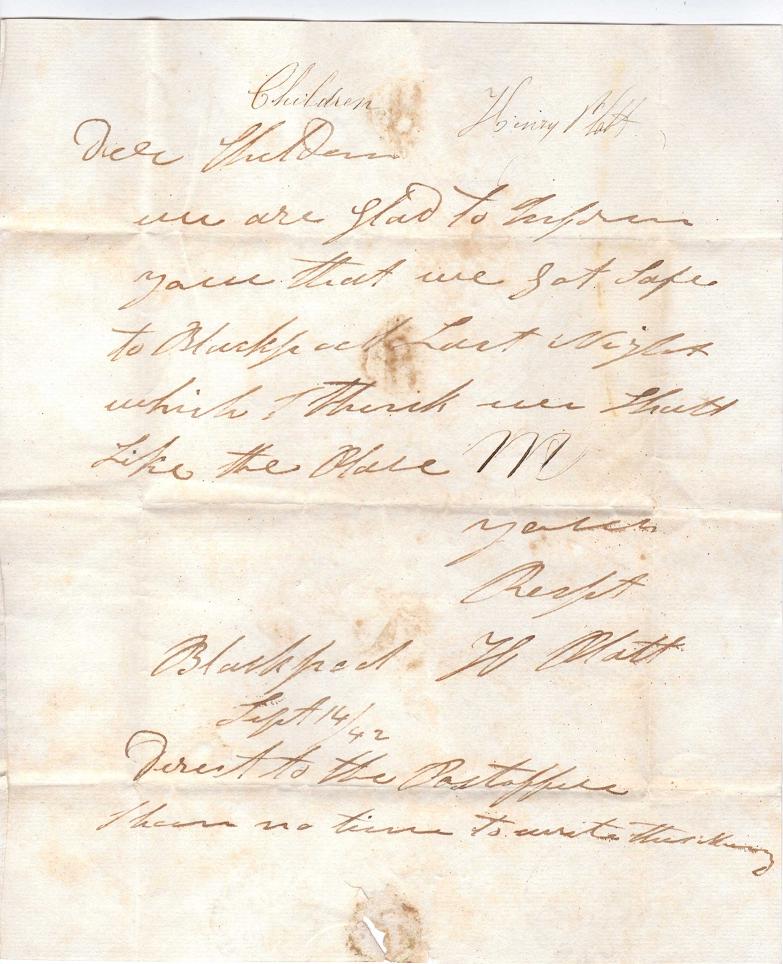 Children Henry Platt
Deer Children
we are glad to Inform
youu that we got Safe
to Blackpool Last Night
which I think we Shall
Like the Place
yours
Respt
Blackpool H Platt
Sept 14/42
Direct to the Postoffice
I have no time to write this Morng